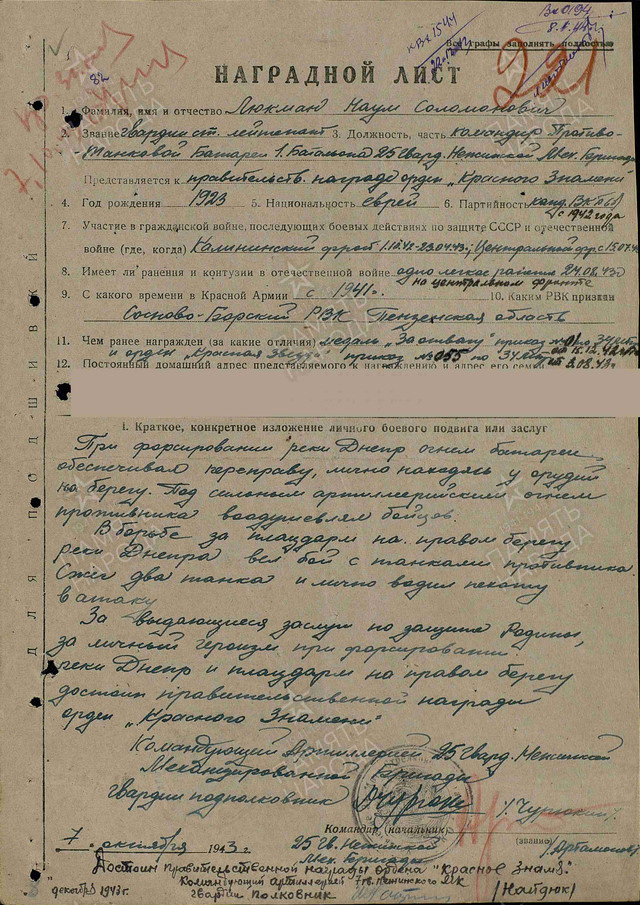 КВх 1544
Вх 0194
Все графы заполнять полностью
82
НАГРАДНОЙ ЛИСТ
1. Фамилия, имя и отчество Люкман Наум Соломонович
2. Звание гвардии ст. лейтенант 3. Должность, часть командир Противо-
танковой Батареи 1. Батальона 25 Гвард. Нежинской Мех. Бригады
Представляется к правительств. награде орден „Красного Знамени"
4. Год рождения 1923 5. Национальность еврей 6. Партийность канд. ВКП(б)
с 1942 года
7. Участие в гражданской войне, последующих боевых действиях по защите СССР и отечественной
войне (где, когда) Калининский фронт 1.10.42-23.04.43г; Центральный фр. с 15.07.43
8. Имеет ли ранения и контузии в отечественной войне одно легкое ранение 24.08.43г
на центральном фронте
9. С какого времени в Красной Армии с 1941г. 10. Каким РВК призван
Сосново-Борский РВК Пензенская область
11. Чем ранее награжден (за какие отличия) медаль „За отвагу" приказ
от 15.12.42
и орден „Красная Звезда" приказ № 055 по
12. Постоянный домашний адрес представляемого к награждению и адрес его семьи
I. Краткое, конкретное изложение личного боевого подвига или заслуг
При форсировании реки Днепр огнем батареи
обеспечивал переправу, лично находясь у орудий
на берегу. Под сильным артиллерийским огнем
противника воодушевлял бойцов.
В борьбе за плацдарм на правом берегу
реки Днепра вел бой с танками противника
Сжег два танка и лично водил пехоту
в атаку
За выдающиеся заслуги по защите Родины,
за личный героизм при форсировании
реки Днепр и плацдарм на правом берегу
достоин правительственной награды
орден „Красного Знамени"
Командующий Артиллерией 25 Гвард. Нежинской
Механизированной Бригады
гвардии подполковник
Командир (начальник)
(звание)
7 октября 1943 г.
25 Гв. Нежинской
Мех. Бригады
/Артамонов/
Достоин правительственной награды ордена "Красное Знамя."
Командующий артиллерией 7 гв. Нежинского МК
гвардии полковник
/Найдюк/
8 декабря 1943г.
ДЛЯ ПОДШИВКИ
ПАМЯТЬ НАРОДА